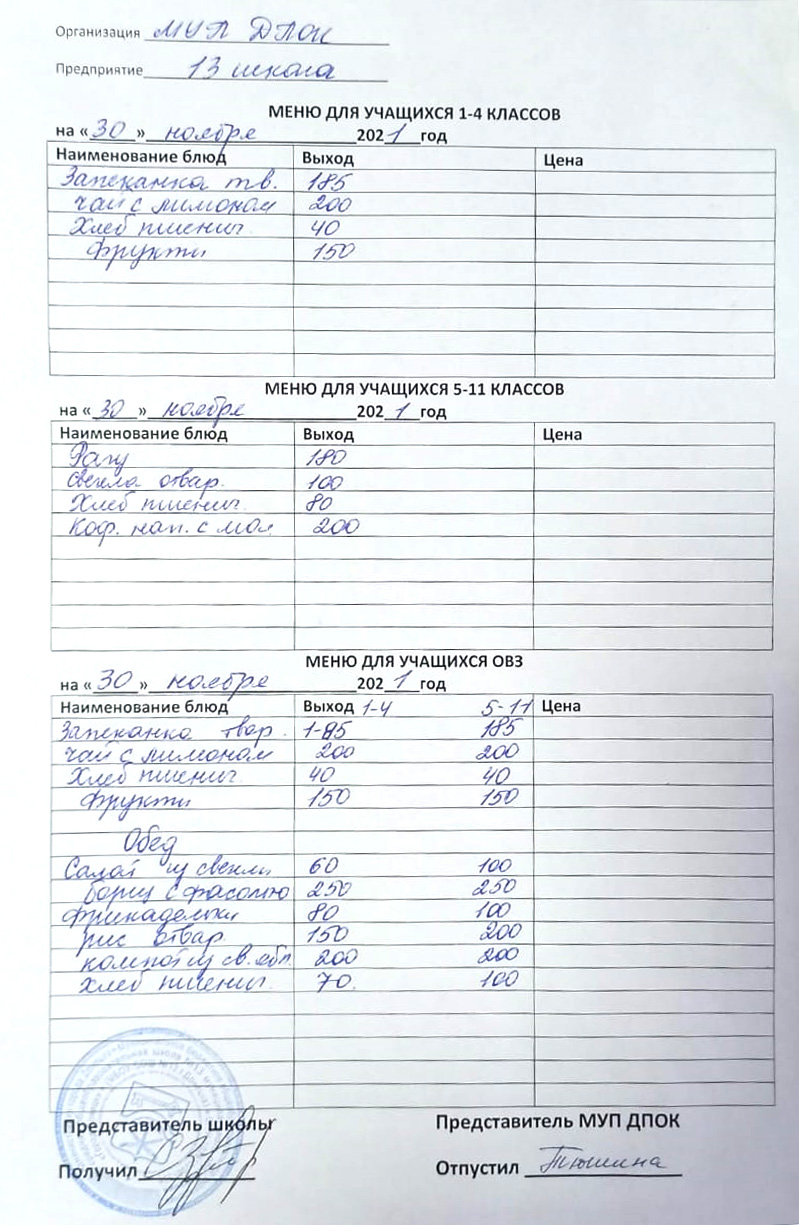 Организация МУП ДПОК
Предприятие 13 школа
МЕНЮ ДЛЯ УЧАЩИХСЯ 1-4 КЛАССОВ
на «30» ноября 2021 год
Наименование блюд Выход Цена
Запеканка тв. 185
чай с лимоном 200
Хлеб пшенич 40
Фрукты 150
МЕНЮ ДЛЯ УЧАЩИХСЯ 5-11 КЛАССОВ
на «30» ноября 2021 год
Наименование блюд Выход Цена
Рагу 180
Свекла отвар. 100
Хлеб пшенич. 80
Коф. нап. с мол 200
МЕНЮ ДЛЯ УЧАЩИХСЯ ОВЗ
на «30» ноября 2021 год
Наименование блюд Выход 1-4 5-11 Цена
Запеканка твор. 185 185
чай с лимоном 200 200
Хлеб пшенич 40 40
Фрукты 150 150
Обед
Салат из свеклы 60 100
борщ с фасолью 250 250
фрикадельки 80 100
рис отвар. 150 200
компот из св. ябл. 200 200
хлеб пшенич. 70. 100
Представитель школы Представитель МУП ДПОК
Получил Отпустил Тюшина